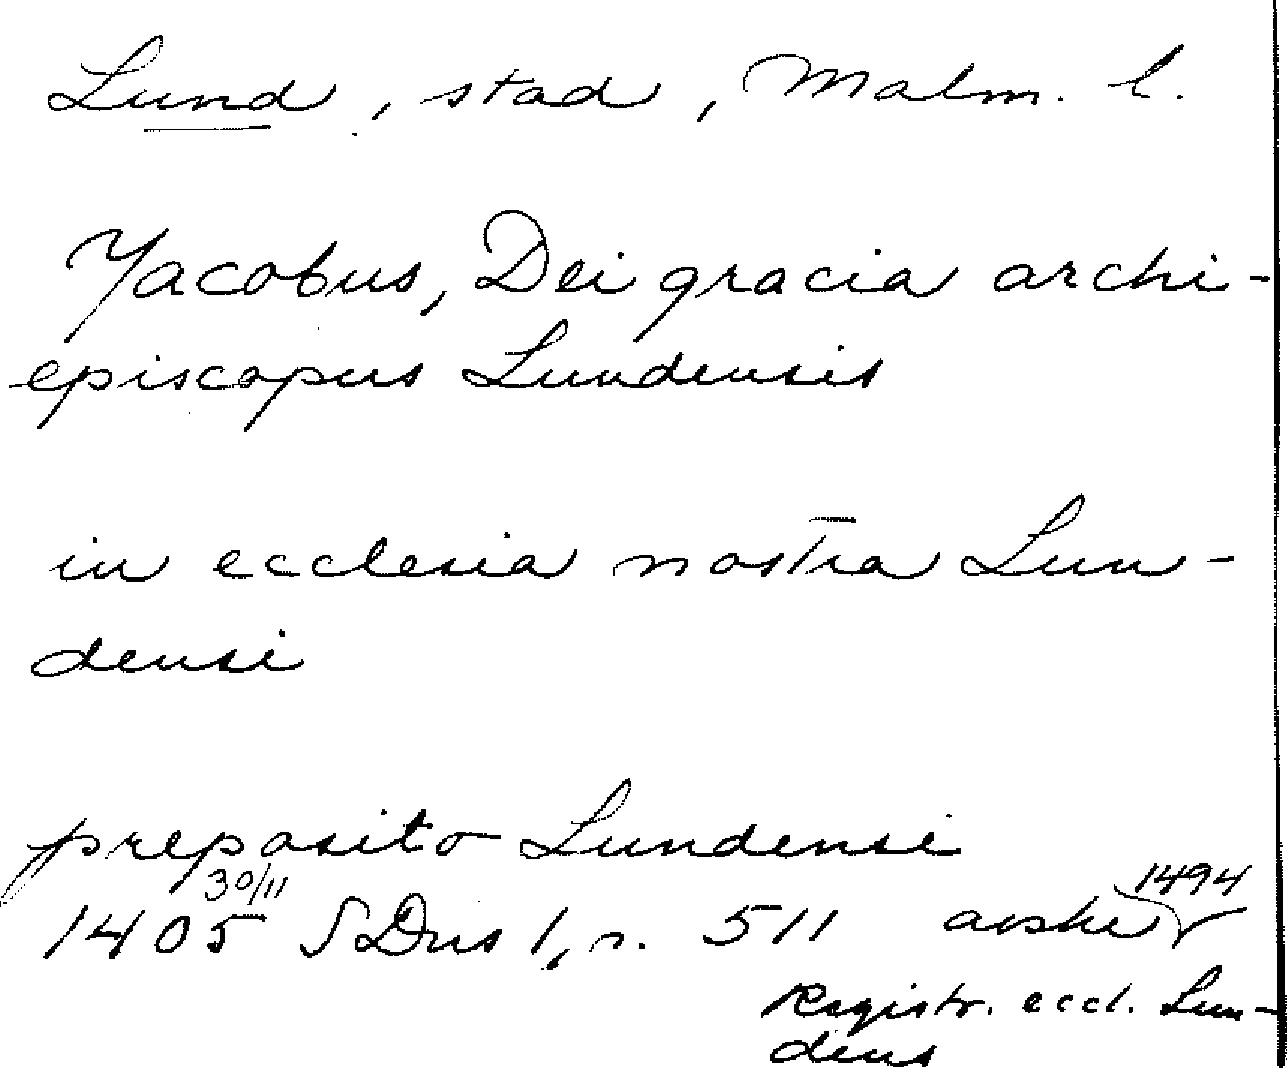 Lund, stad, Malm. l.
Jacobus, Dei gracia archi-
episcopus Lundensis
in ecclesia nostra Lun-
densi
preposito Lundensi
30/11
1405 SDns 1, s. 511 avskr 1494
Registr. eccl. Lun-
dens